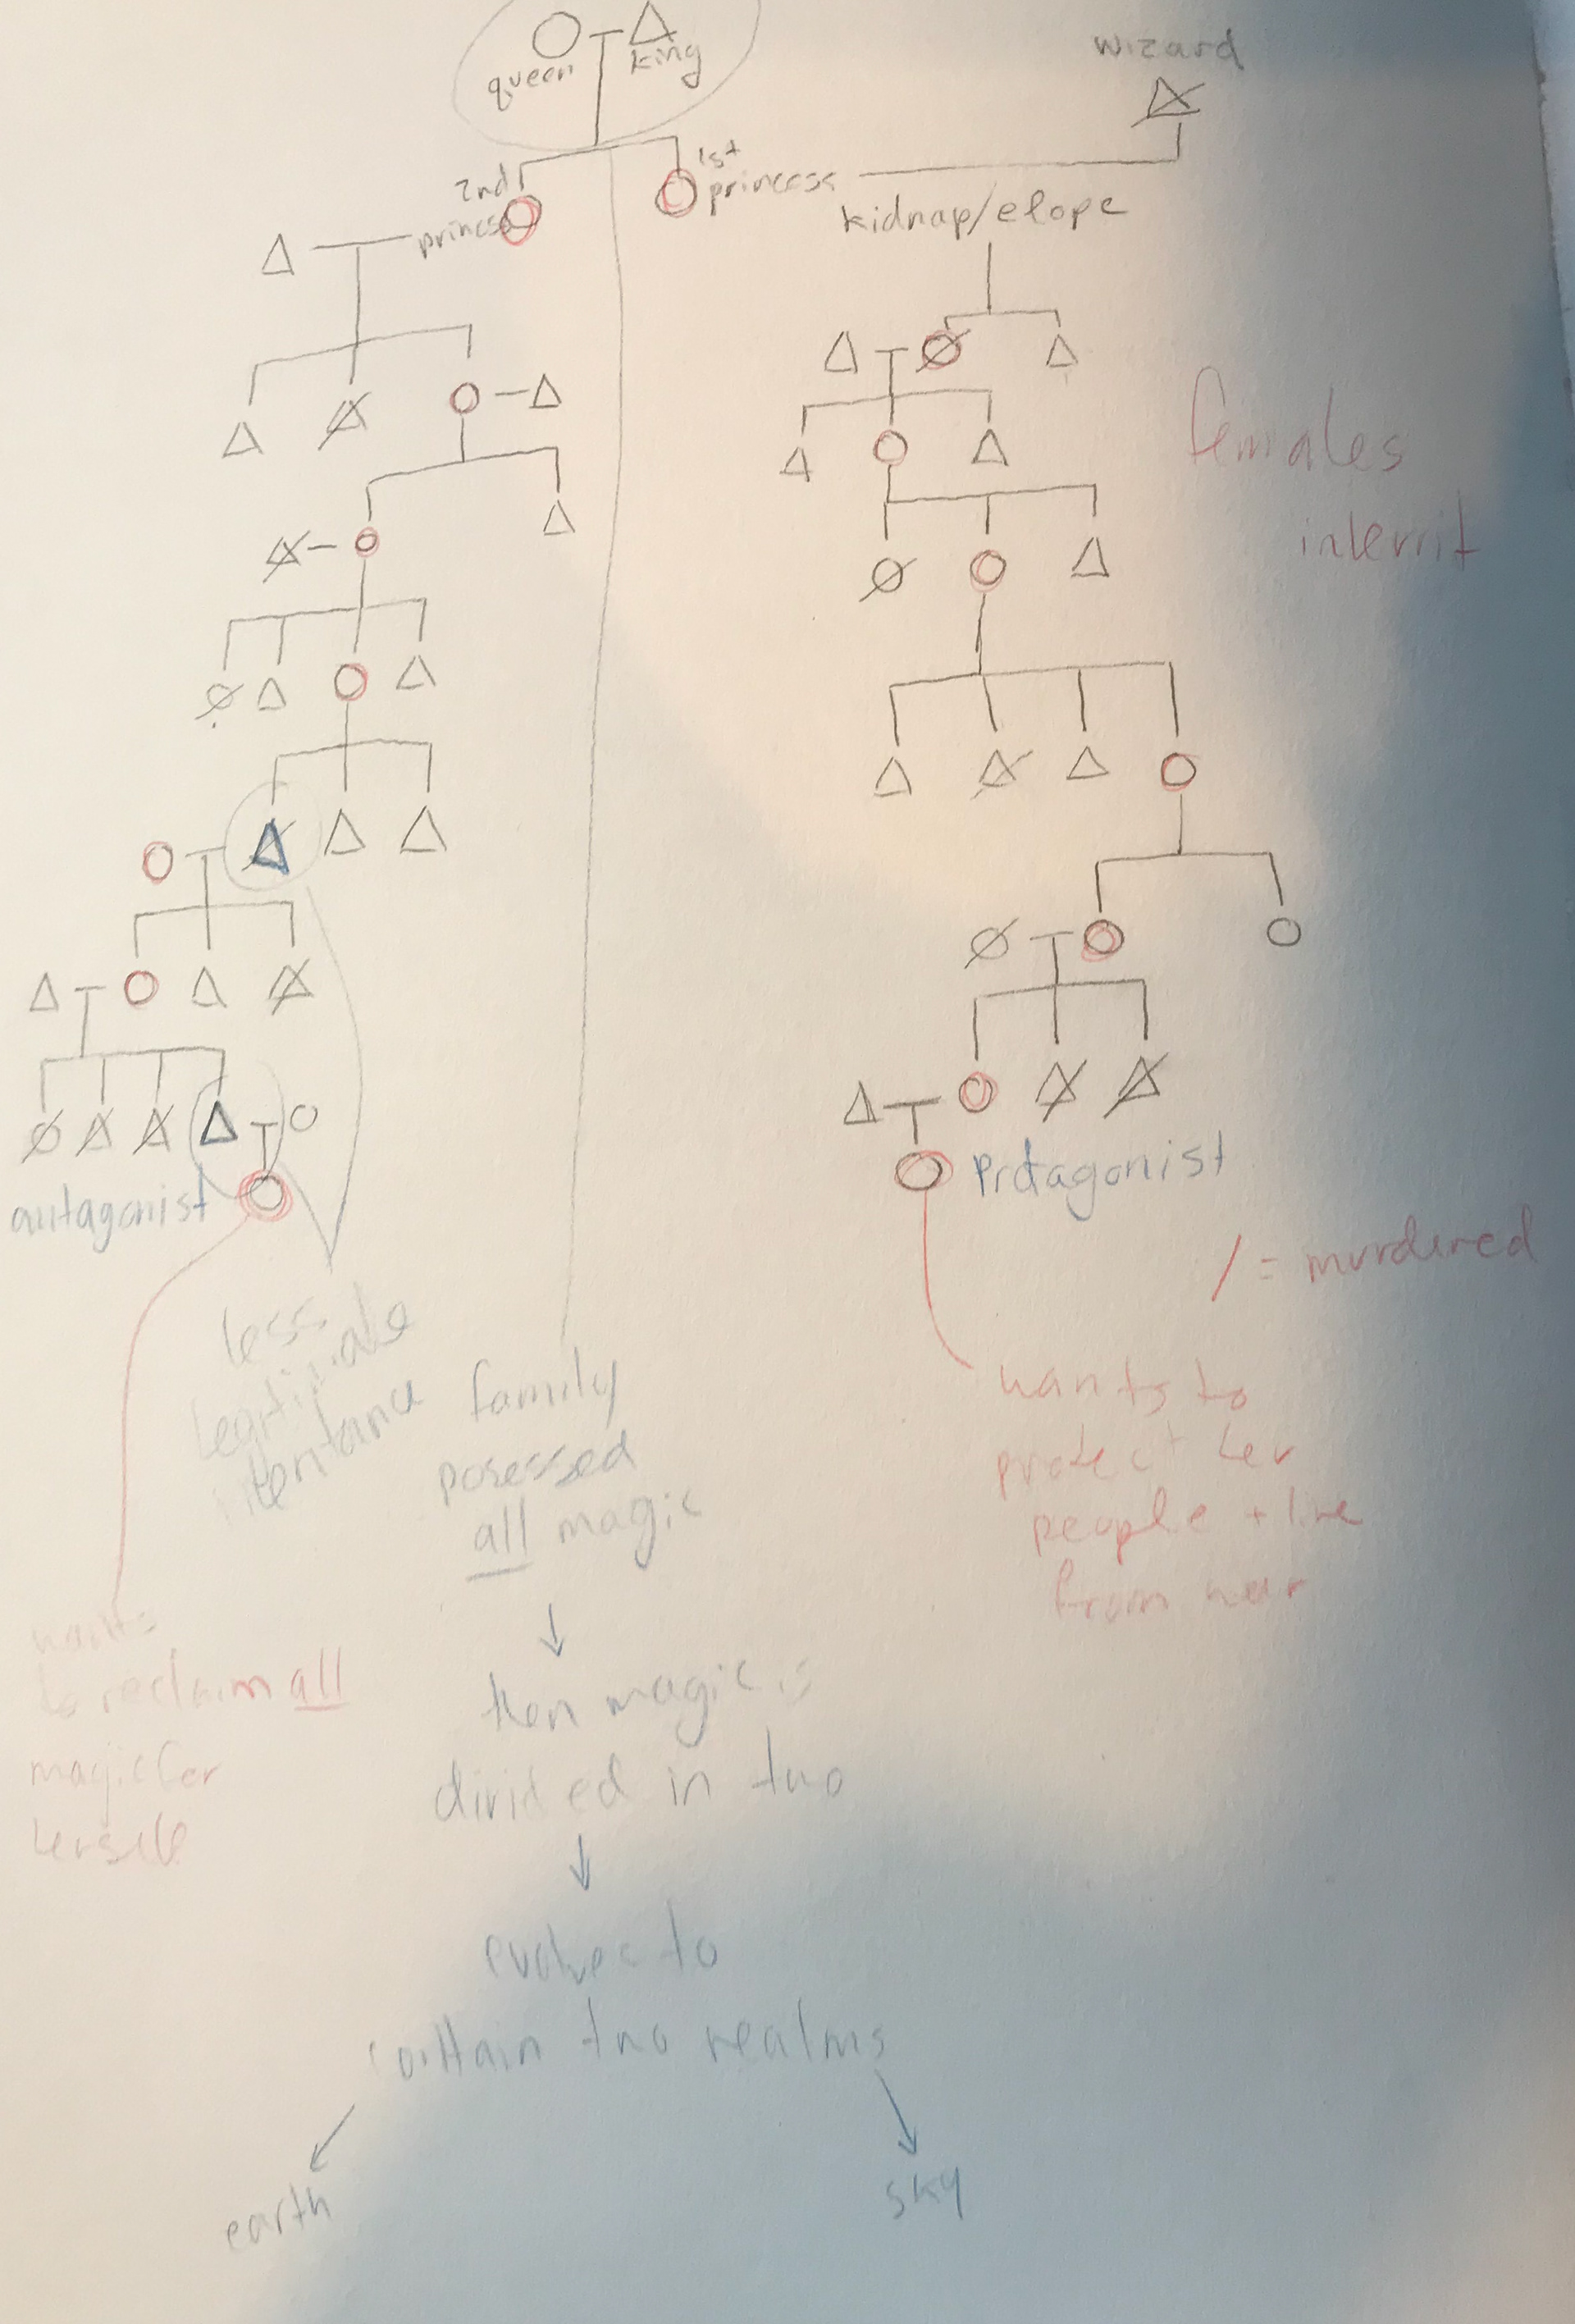 queen
king
wizard
2nd
princess
1st
princess
kidnap/elope
females
inherrit
antagonist
Protagonist
/ = murdered
less
legitimate
family
posessed
all magic
then magic is
divided in two
evolves to
contain two realms
earth
sky
wants
to reclaim all
magic for
herself
wants to
protect her
people + line
from war